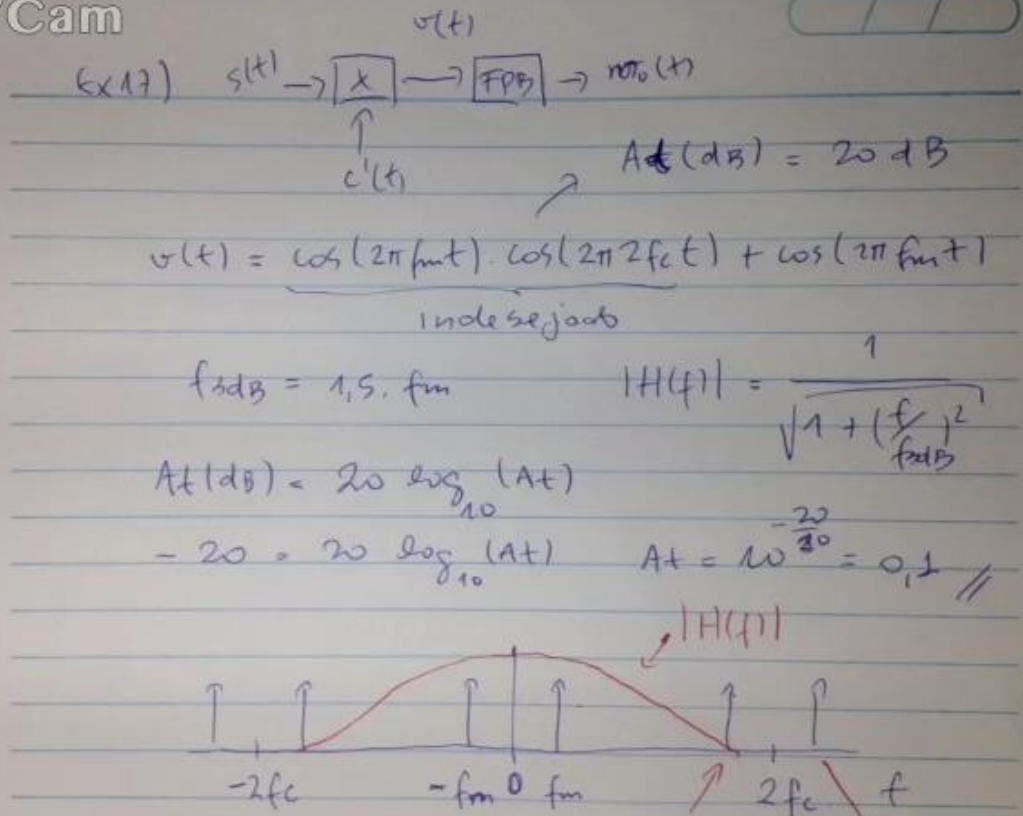 Cam
v(t)
Ex 17) s(t) → X → FPB → m₀(t)
c'(t)
At (dB) = 20 dB
v(t) = cos(2π fmt) . cos(2π 2fc t) + cos(2π fm t)
indesejado
f3dB = 1,5. fm |H(f)| = 1 / √1 + (f/f3dB)²
At(dB) = 20 log10 (At)
- 20 = 20 log10 (At) At = 10^(-20/20) = 0,1 //
|H(f)|
-2fc -fm 0 fm 2fc f